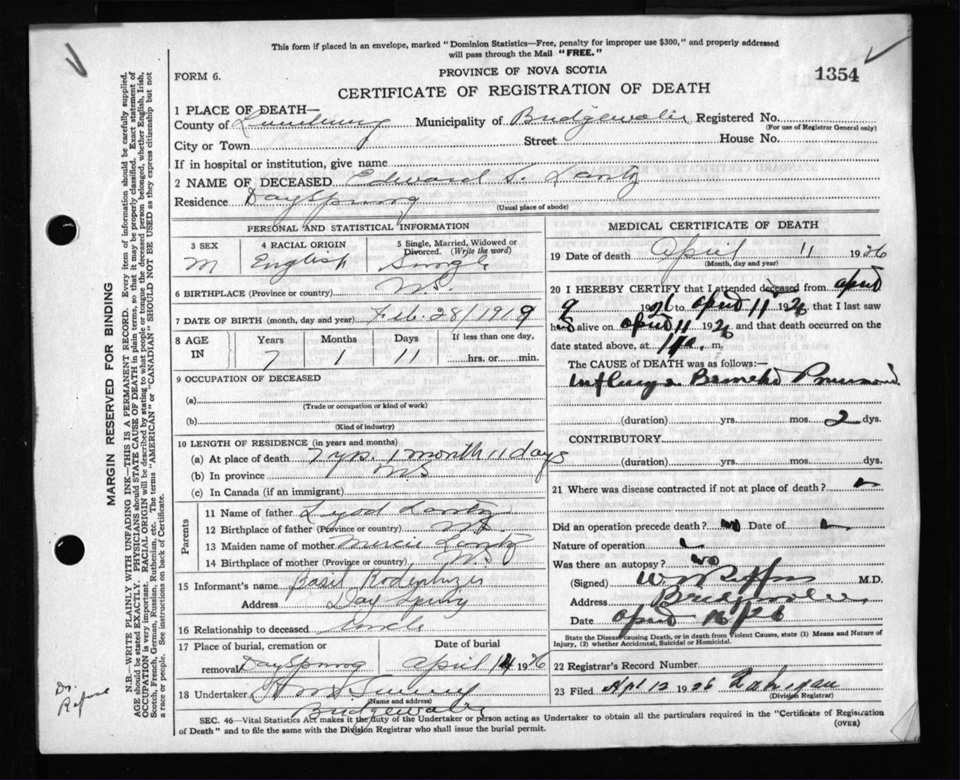 This form if placed in an envelope, marked "Dominion Statistics—Free, penalty for improper use $300," and properly addressed
will pass through the Mail "FREE."
FORM 6.
PROVINCE OF NOVA SCOTIA
1354
CERTIFICATE OF REGISTRATION OF DEATH
1 PLACE OF DEATH—
County of Lunenburg Municipality of Bridgewater Registered No.
(For use of Registrar General only)
City or Town Street House No.
If in hospital or institution, give name
2 NAME OF DECEASED Edward S. Lantz
Residence DaySpring
(Usual place of abode)
PERSONAL AND STATISTICAL INFORMATION
3 SEX 4 RACIAL ORIGIN 5 Single, Married, Widowed or Divorced. (Write the word)
M English Single
6 BIRTHPLACE (Province or country) N.S.
7 DATE OF BIRTH (month, day and year) Feb. 28/1919
8 AGE IN Years Months Days If less than one day,
7 1 11 hrs. or min.
9 OCCUPATION OF DECEASED
(a)
(Trade or occupation or kind of work)
(b)
(Kind of industry)
10 LENGTH OF RESIDENCE (in years and months)
(a) At place of death 7 yrs. 1 month 11 days
(b) In province N.S
(c) In Canada (if an immigrant)
Parents
11 Name of father Lantz
12 Birthplace of father (Province or country) N.S.
13 Maiden name of mother Lantz
14 Birthplace of mother (Province or country) N.S
15 Informant's name Basil
Address Day Spring
16 Relationship to deceased Uncle
17 Place of burial, cremation or Date of burial
removal DaySpring April 14 1926
18 Undertaker
(Name and address)
Bridgewater
MEDICAL CERTIFICATE OF DEATH
19 Date of death April 11 1926
(Month, day and year)
20 I HEREBY CERTIFY that I attended deceased from April
9 1926 to April 11 1926 that I last saw
h alive on April 11 1926 and that death occurred on the
date stated above, at m.
The CAUSE of DEATH was as follows:
Influenza Pneumonia
(duration) yrs. mos. 2 dys.
CONTRIBUTORY
(duration) yrs. mos. dys.
21 Where was disease contracted if not at place of death?
Did an operation precede death? no Date of
Nature of operation
Was there an autopsy? no
(Signed) M.D.
Address Bridgewater
Date April
State the Disease causing Death, or in death from Violent Causes, state (1) Means and Nature of
Injury, (2) whether Accidental, Suicidal or Homicidal.
22 Registrar's Record Number
23 Filed Apl 12 1926
(Division Registrar)
SEC. 46—Vital Statistics Act makes it the duty of the Undertaker or person acting as Undertaker to obtain all the particulars required in the "Certificate of Registration
of Death" and to file the same with the Division Registrar who shall issue the burial permit.
(OVER)
MARGIN RESERVED FOR BINDING
N.B.—WRITE PLAINLY WITH UNFADING INK—THIS IS A PERMANENT RECORD. Every item of information should be carefully supplied.
AGE should be stated EXACTLY. PHYSICIANS should STATE CAUSE OF DEATH in plain terms, so that it may be properly classified. Exact statement of
OCCUPATION is very important. RACIAL ORIGIN will be described by stating to what people or tongue the deceased person belonged, whether English, Irish,
Scotch, French, German, Russian, Ruthenian, etc. The terms "AMERICAN" or "CANADIAN" SHOULD NOT BE USED as they express citizenship but not
a race or people. See instructions on back of Certificate.
Dr.